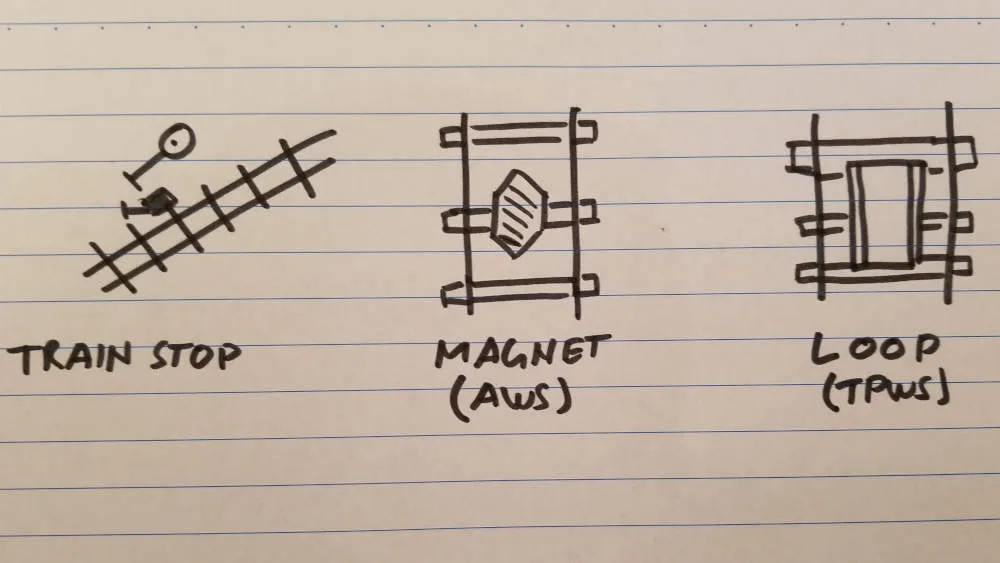 TRAIN STOP
MAGNET
(AWS)
LOOP
(TPWS)